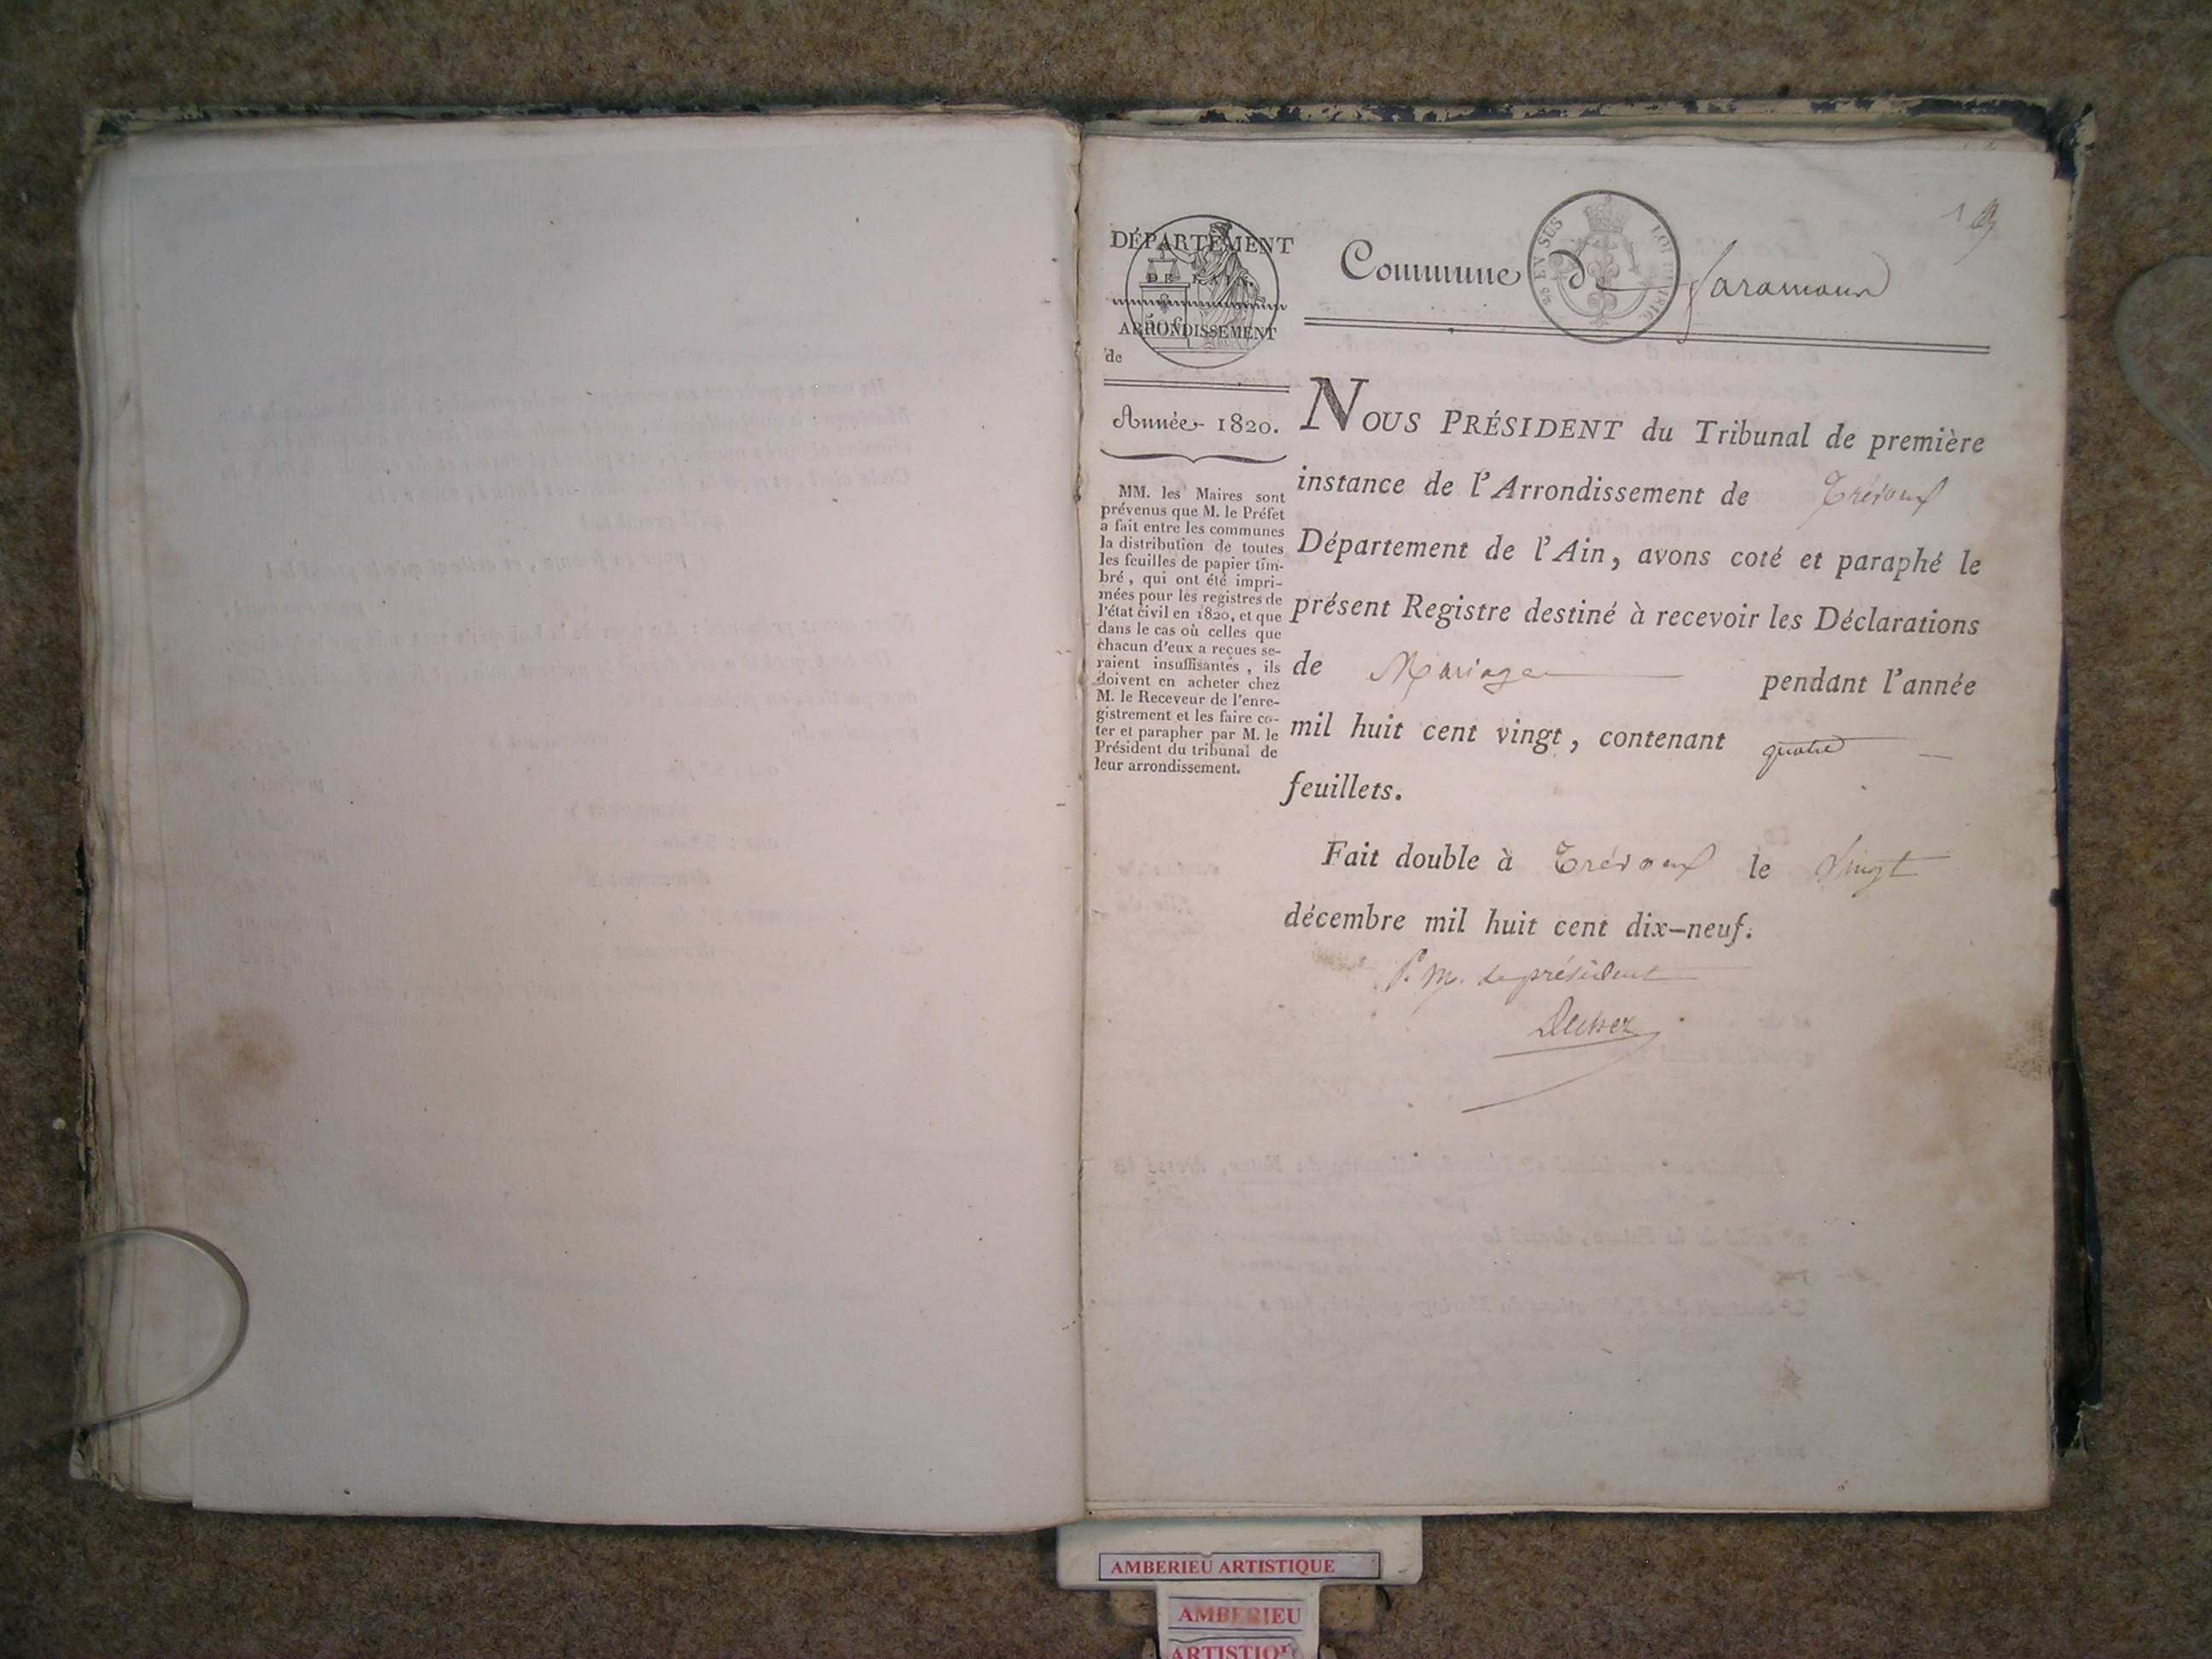 DÉPARTEMENT
DE L'AIN.
ARRONDISSEMENT
de
Année 1820.
MM. les Maires sont
prévenus que M. le Préfet
a fait entre les communes
la distribution de toutes
les feuilles de papier tim-
bré, qui ont été impri-
mées pour les registres de
l'état civil en 1820, et que
dans le cas où celles que
chacun d'eux a reçues se-
raient insuffisantes, ils
doivent en acheter chez
M. le Receveur de l'enre-
gistrement et les faire co-
ter et parapher par M. le
Président du tribunal de
leur arrondissement.
EN SUS
Commune de Saramoun
NOUS PRÉSIDENT du Tribunal de première
instance de l'Arrondissement de Trévoux
Département de l'Ain, avons coté et paraphé le
présent Registre destiné à recevoir les Déclarations
de Mariage pendant l'année
mil huit cent vingt, contenant quatre
feuillets.
Fait double à Trévoux le Vingt
décembre mil huit cent dix-neuf.
P. M. le président
AMBERIEU ARTISTIQUE
AMBERIEU
ARTISTIQUE